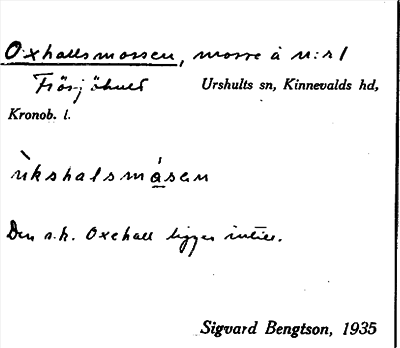 Oxhallsmossen, mosse å n:r 1
Frösjöhult Urshults sn, Kinnevalds hd,
Kronob. l.
ùkshalsmå̀sen
Den s.k. Oxehall ligger intill.
Sigvard Bengtson, 1935